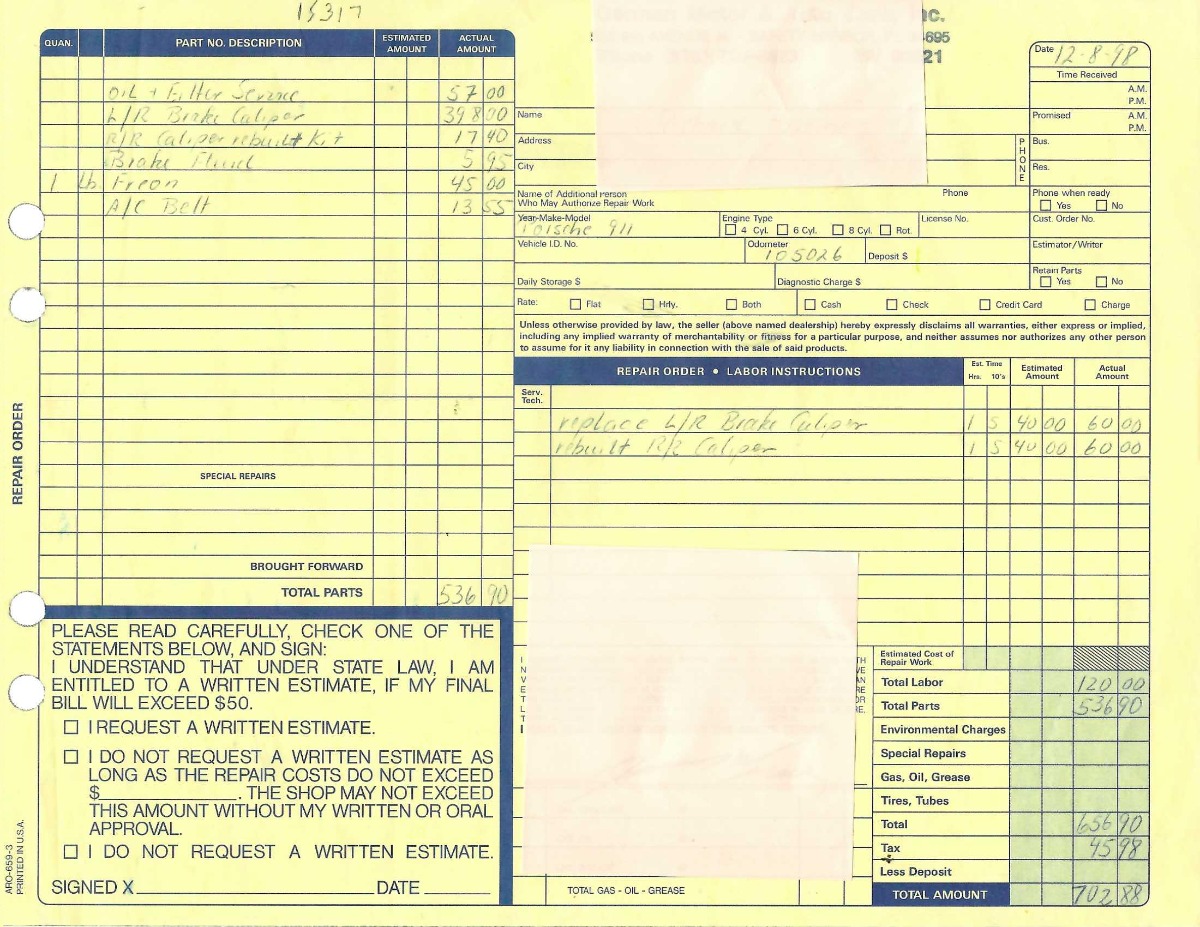 15317
QUAN. PART NO. DESCRIPTION ESTIMATED AMOUNT ACTUAL AMOUNT
OIL + Filter Service 57 00
L/R Brake Caliper 398 00
R/R Caliper rebuilt Kit 17 40
Brake Fluid 5 95
1 Lb. Freon 45 00
A/C Belt 13 55
SPECIAL REPAIRS
BROUGHT FORWARD
TOTAL PARTS 536 90
REPAIR ORDER
ARO-659-3
PRINTED IN U.S.A.
PLEASE READ CAREFULLY, CHECK ONE OF THE
STATEMENTS BELOW, AND SIGN:
I UNDERSTAND THAT UNDER STATE LAW, I AM
ENTITLED TO A WRITTEN ESTIMATE, IF MY FINAL
BILL WILL EXCEED $50.
I REQUEST A WRITTEN ESTIMATE.
I DO NOT REQUEST A WRITTEN ESTIMATE AS
LONG AS THE REPAIR COSTS DO NOT EXCEED
$____________. THE SHOP MAY NOT EXCEED
THIS AMOUNT WITHOUT MY WRITTEN OR ORAL
APPROVAL.
I DO NOT REQUEST A WRITTEN ESTIMATE.
SIGNED X DATE
nc.
4695
21
Date 12-8-98
Time Received
A.M.
P.M.
Name Promised A.M.
P.M.
Address PHONE Bus.
City Res.
Name of Additional Person Phone Phone when ready
Who May Authorize Repair Work Yes No
Year-Make-Model Engine Type License No. Cust. Order No.
Porsche 911 4 Cyl. 6 Cyl. 8 Cyl. Rot.
Vehicle I.D. No. Odometer Estimator/Writer
105026 Deposit $
Daily Storage $ Diagnostic Charge $ Retain Parts
Yes No
Rate: Flat Hrly. Both Cash Check Credit Card Charge
Unless otherwise provided by law, the seller (above named dealership) hereby expressly disclaims all warranties, either express or implied,
including any implied warranty of merchantability or fitness for a particular purpose, and neither assumes nor authorizes any other person
to assume for it any liability in connection with the sale of said products.
REPAIR ORDER • LABOR INSTRUCTIONS Est. Time Hrs. 10's Estimated Amount Actual Amount
Serv. Tech.
replace L/R Brake Caliper 1 5 40 00 60 00
rebuilt R/R Caliper 1 5 40 00 60 00
Estimated Cost of
Repair Work
Total Labor 120 00
Total Parts 536 90
Environmental Charges
Special Repairs
Gas, Oil, Grease
Tires, Tubes
Total 656 90
Tax 45 98
Less Deposit
TOTAL GAS - OIL - GREASE
TOTAL AMOUNT 702 88